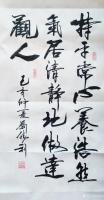 持平常心養浩然
氣居清靜地做達
觀人
己亥仲夏